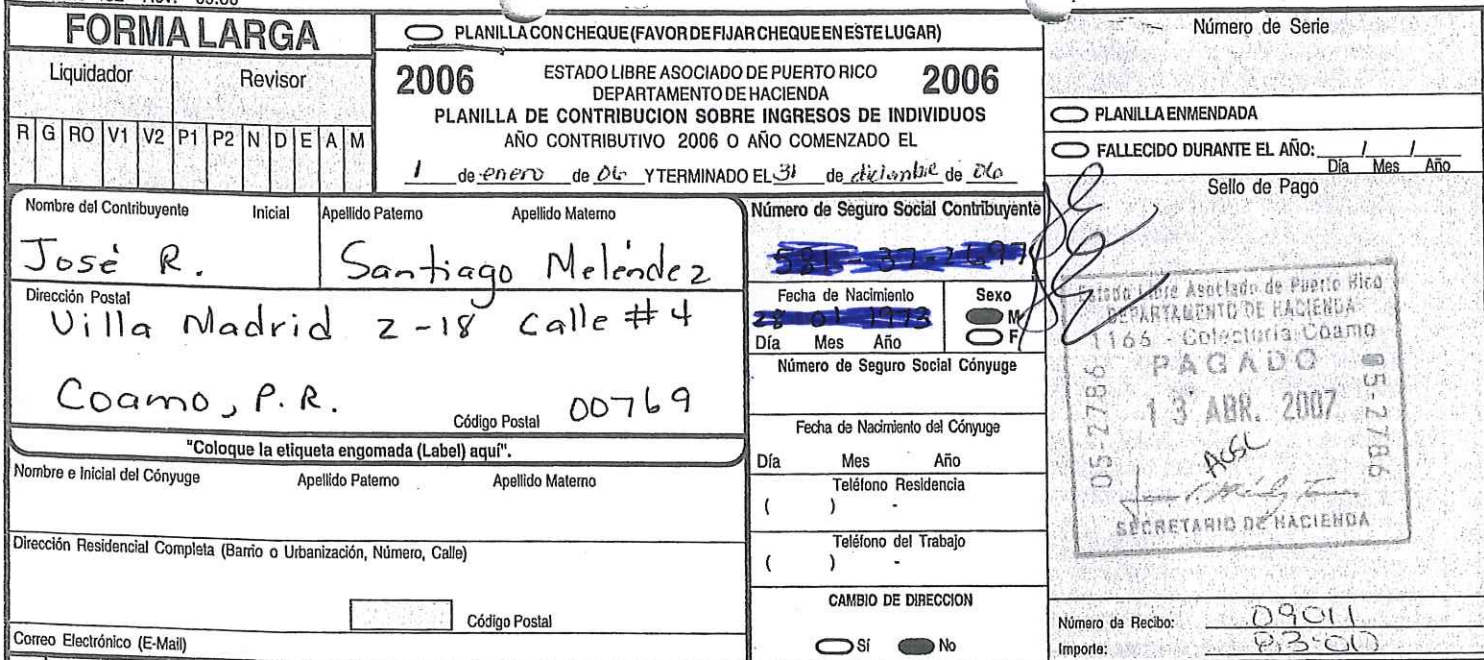 FORMA LARGA
Liquidador Revisor
R G RO V1 V2 P1 P2 N D E A M
PLANILLA CON CHEQUE (FAVOR DE FIJAR CHEQUE EN ESTE LUGAR)
2006 ESTADO LIBRE ASOCIADO DE PUERTO RICO 2006
DEPARTAMENTO DE HACIENDA
PLANILLA DE CONTRIBUCION SOBRE INGRESOS DE INDIVIDUOS
AÑO CONTRIBUTIVO 2006 O AÑO COMENZADO EL
1 de enero de 06 Y TERMINADO EL 31 de diciembre de 06
Número de Serie
PLANILLA ENMENDADA
FALLECIDO DURANTE EL AÑO: / /
Día Mes Año
Nombre del Contribuyente Inicial Apellido Paterno Apellido Materno
José R. Santiago Meléndez
Dirección Postal
Villa Madrid Z-18 Calle #4
Coamo, P.R. 00769
Código Postal
"Coloque la etiqueta engomada (Label) aquí".
Nombre e Inicial del Cónyuge Apellido Paterno Apellido Materno
Dirección Residencial Completa (Barrio o Urbanización, Número, Calle)
Código Postal
Correo Electrónico (E-Mail)
Número de Seguro Social Contribuyente
Fecha de Nacimiento Sexo
M
F
Día Mes Año
Número de Seguro Social Cónyuge
Fecha de Nacimiento del Cónyuge
Día Mes Año
Teléfono Residencia
( ) -
Teléfono del Trabajo
( ) -
CAMBIO DE DIRECCION
Sí No
Sello de Pago
Estado Libre Asociado de Puerto Rico
DEPARTAMENTO DE HACIENDA
1165 - Colecturía Coamo
PAGADO
13 ABR. 2007
05-2786
05-2786
SECRETARIO DE HACIENDA
Número de Recibo: 09011
Importe: